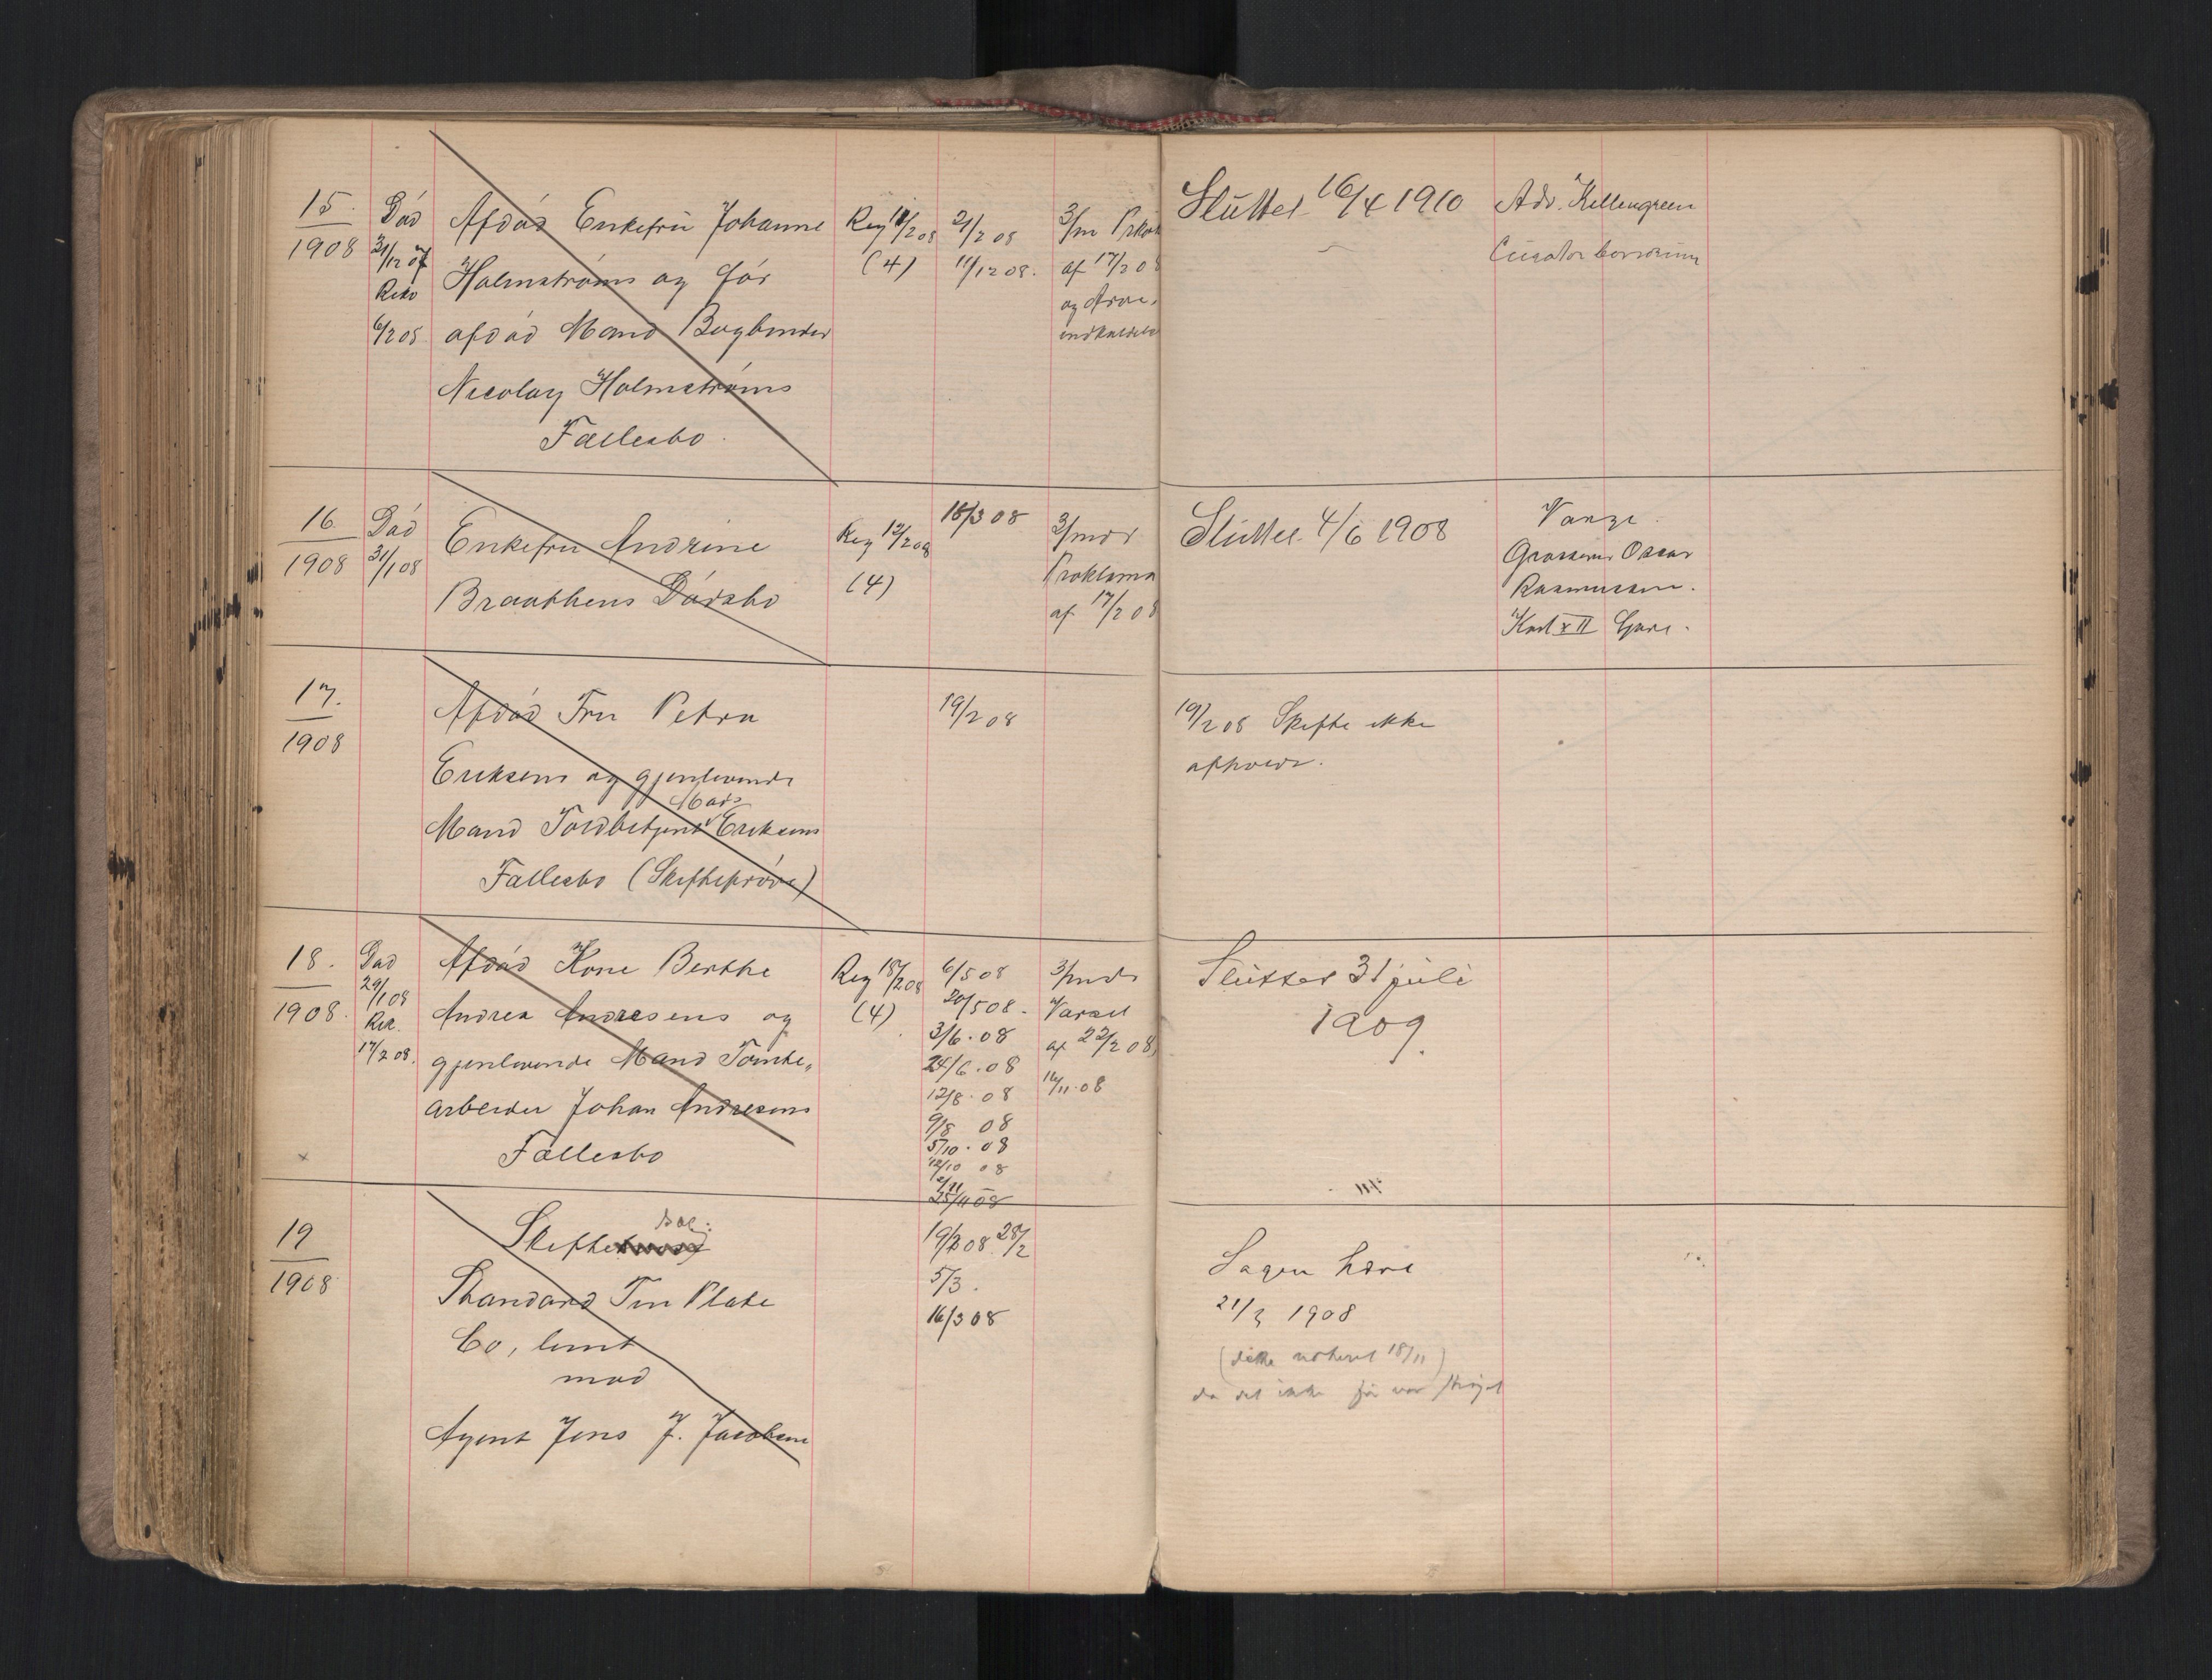 15
1908
Död
31/12 07
Rekv
6/2 08
Afdöd Enkefru Johanne
Holmströms og før
afdöd Mand Bogbinder
Nicolay Holmströms
Fællesbo.
Reg 11/2 08
(4)
21/2 08
11/12 08.
3/m Prkl
af 17/2 08
og Arve-
indkaldelse
Sluttet 16/4 1910
Adv. Kellengreen
Curator bonorum
16
1908
Död
31/1 08
Enkefru Andrine
Braathens Dödsbo
Reg 12/2 08
(4)
18/3 08
3/mdr
Proklama
af 17/2 08
Sluttet 4/6 1908
Grosserer Oscar
Rasmussen.
Karl XII Gade.
17.
1908
Afdöd Fru Petra
Eriksens og gjenlevende
Mads
Mand Toldbetjent Eriksens
Fællesbo (Skifteprøve)
19/2 08
19/2 08 Skifte ikke
afholdt.
18.
1908.
Död
29/1 08
Rek.
17/2 08.
Afdöd Kone Berthe
Andrea Andresens og
gjenlevende Mand Tomte-
arbeider Johan Andresens
Fællesbo
Reg 18/2 08
(4)
6/5 08
20/5 08.
3/6. 08
24/6. 08
12/8. 08
9/8 08
5/10. 08
12/10 08
2/11
25/11 08
3/mdr
Varsel
af 22/2 08,
16/11. 08
Sluttet 31 juli
1909.
19
1908
Skifte
Standard Tin Plate
Co, limt
mod
Agent Jens J. Jacobsen
19/2 08. 28/2
5/3.
16/3 08
Sagen hævet
21/3 1908
(dette noteret 18/11)
da det ikke før var skrevet